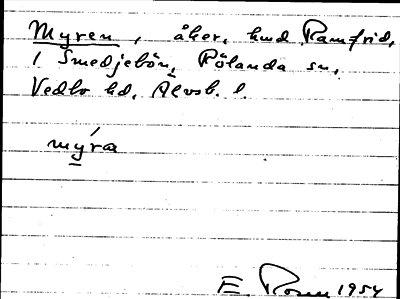 Myren, åker, hmd Ramfrid,
1 Smedjebön, Rölanda sn,
Vedbo hd, Älvsb. l.
mýra
E. Rosén 1954